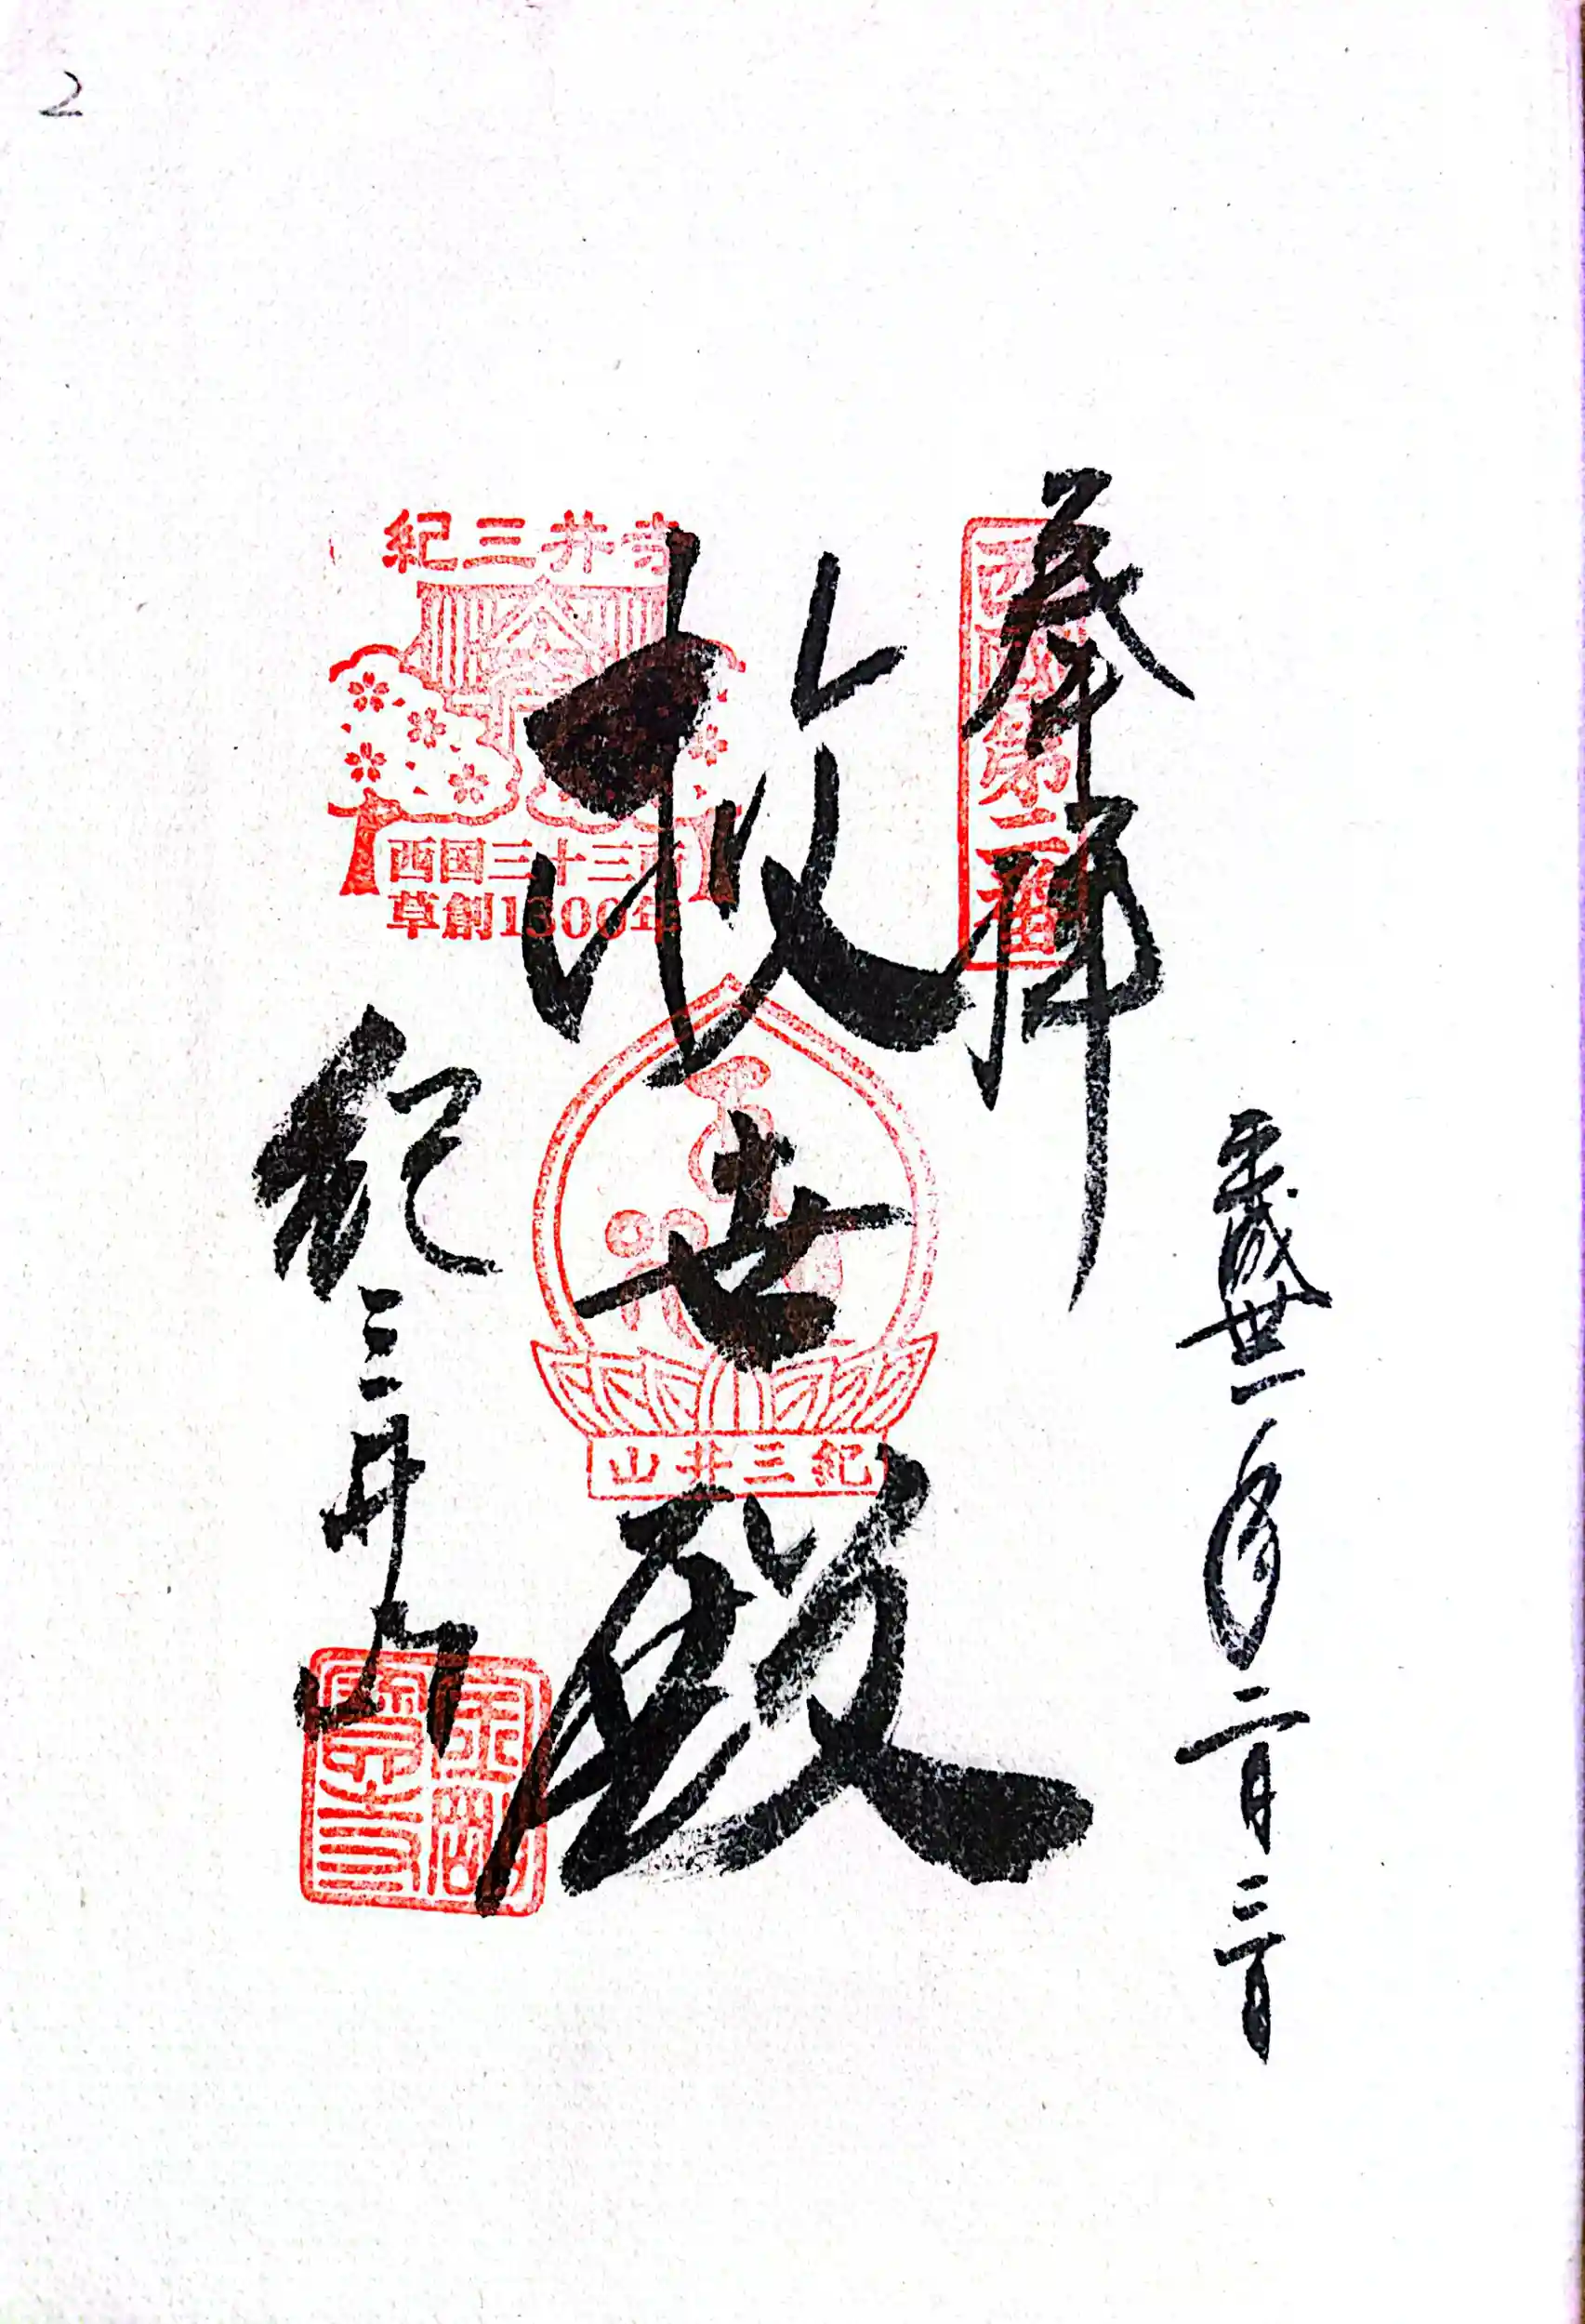 2
平成卅一年二月三日
奉拝
西国第二番
救世殿
紀三井山
紀三井寺
西国三十三所
草創1300年
紀三井山
金剛
宝寺